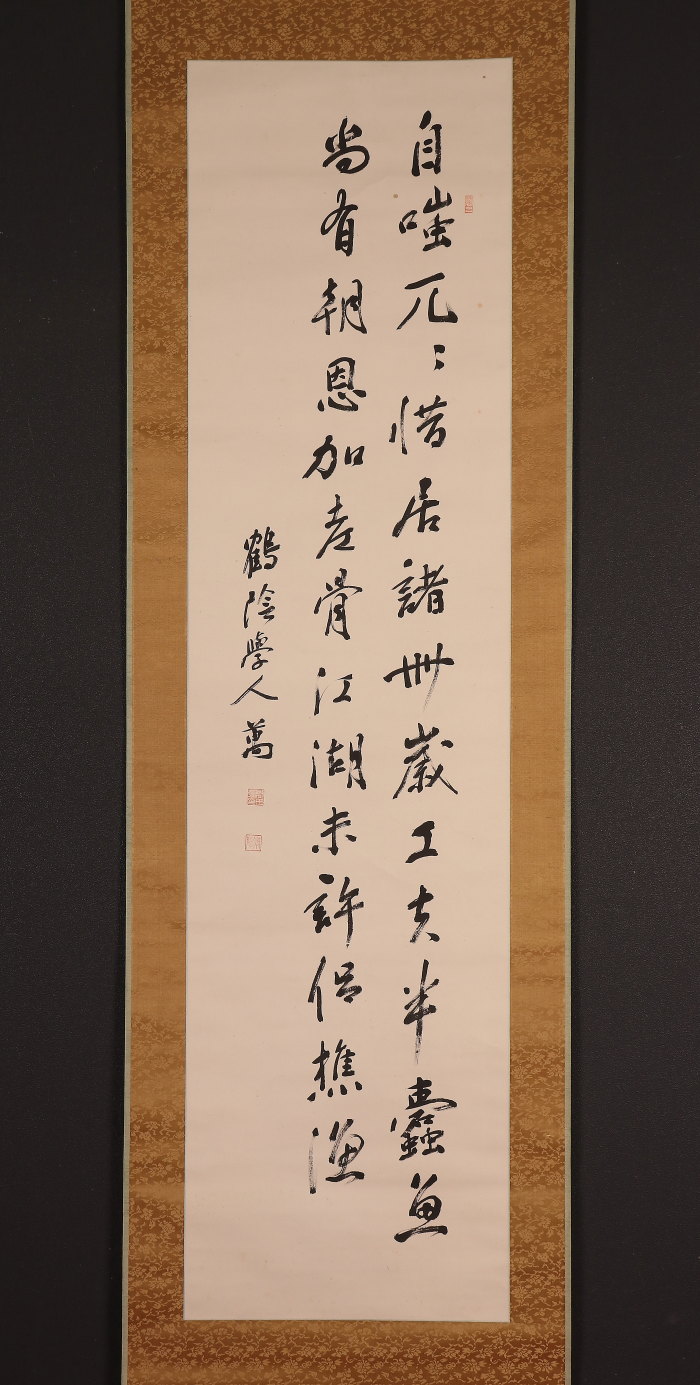 自嗤兀〻惜居諸卌歳工夫半蠹魚
尚有朝恩加老骨江湖未許侶樵漁
鶴陰學人萬